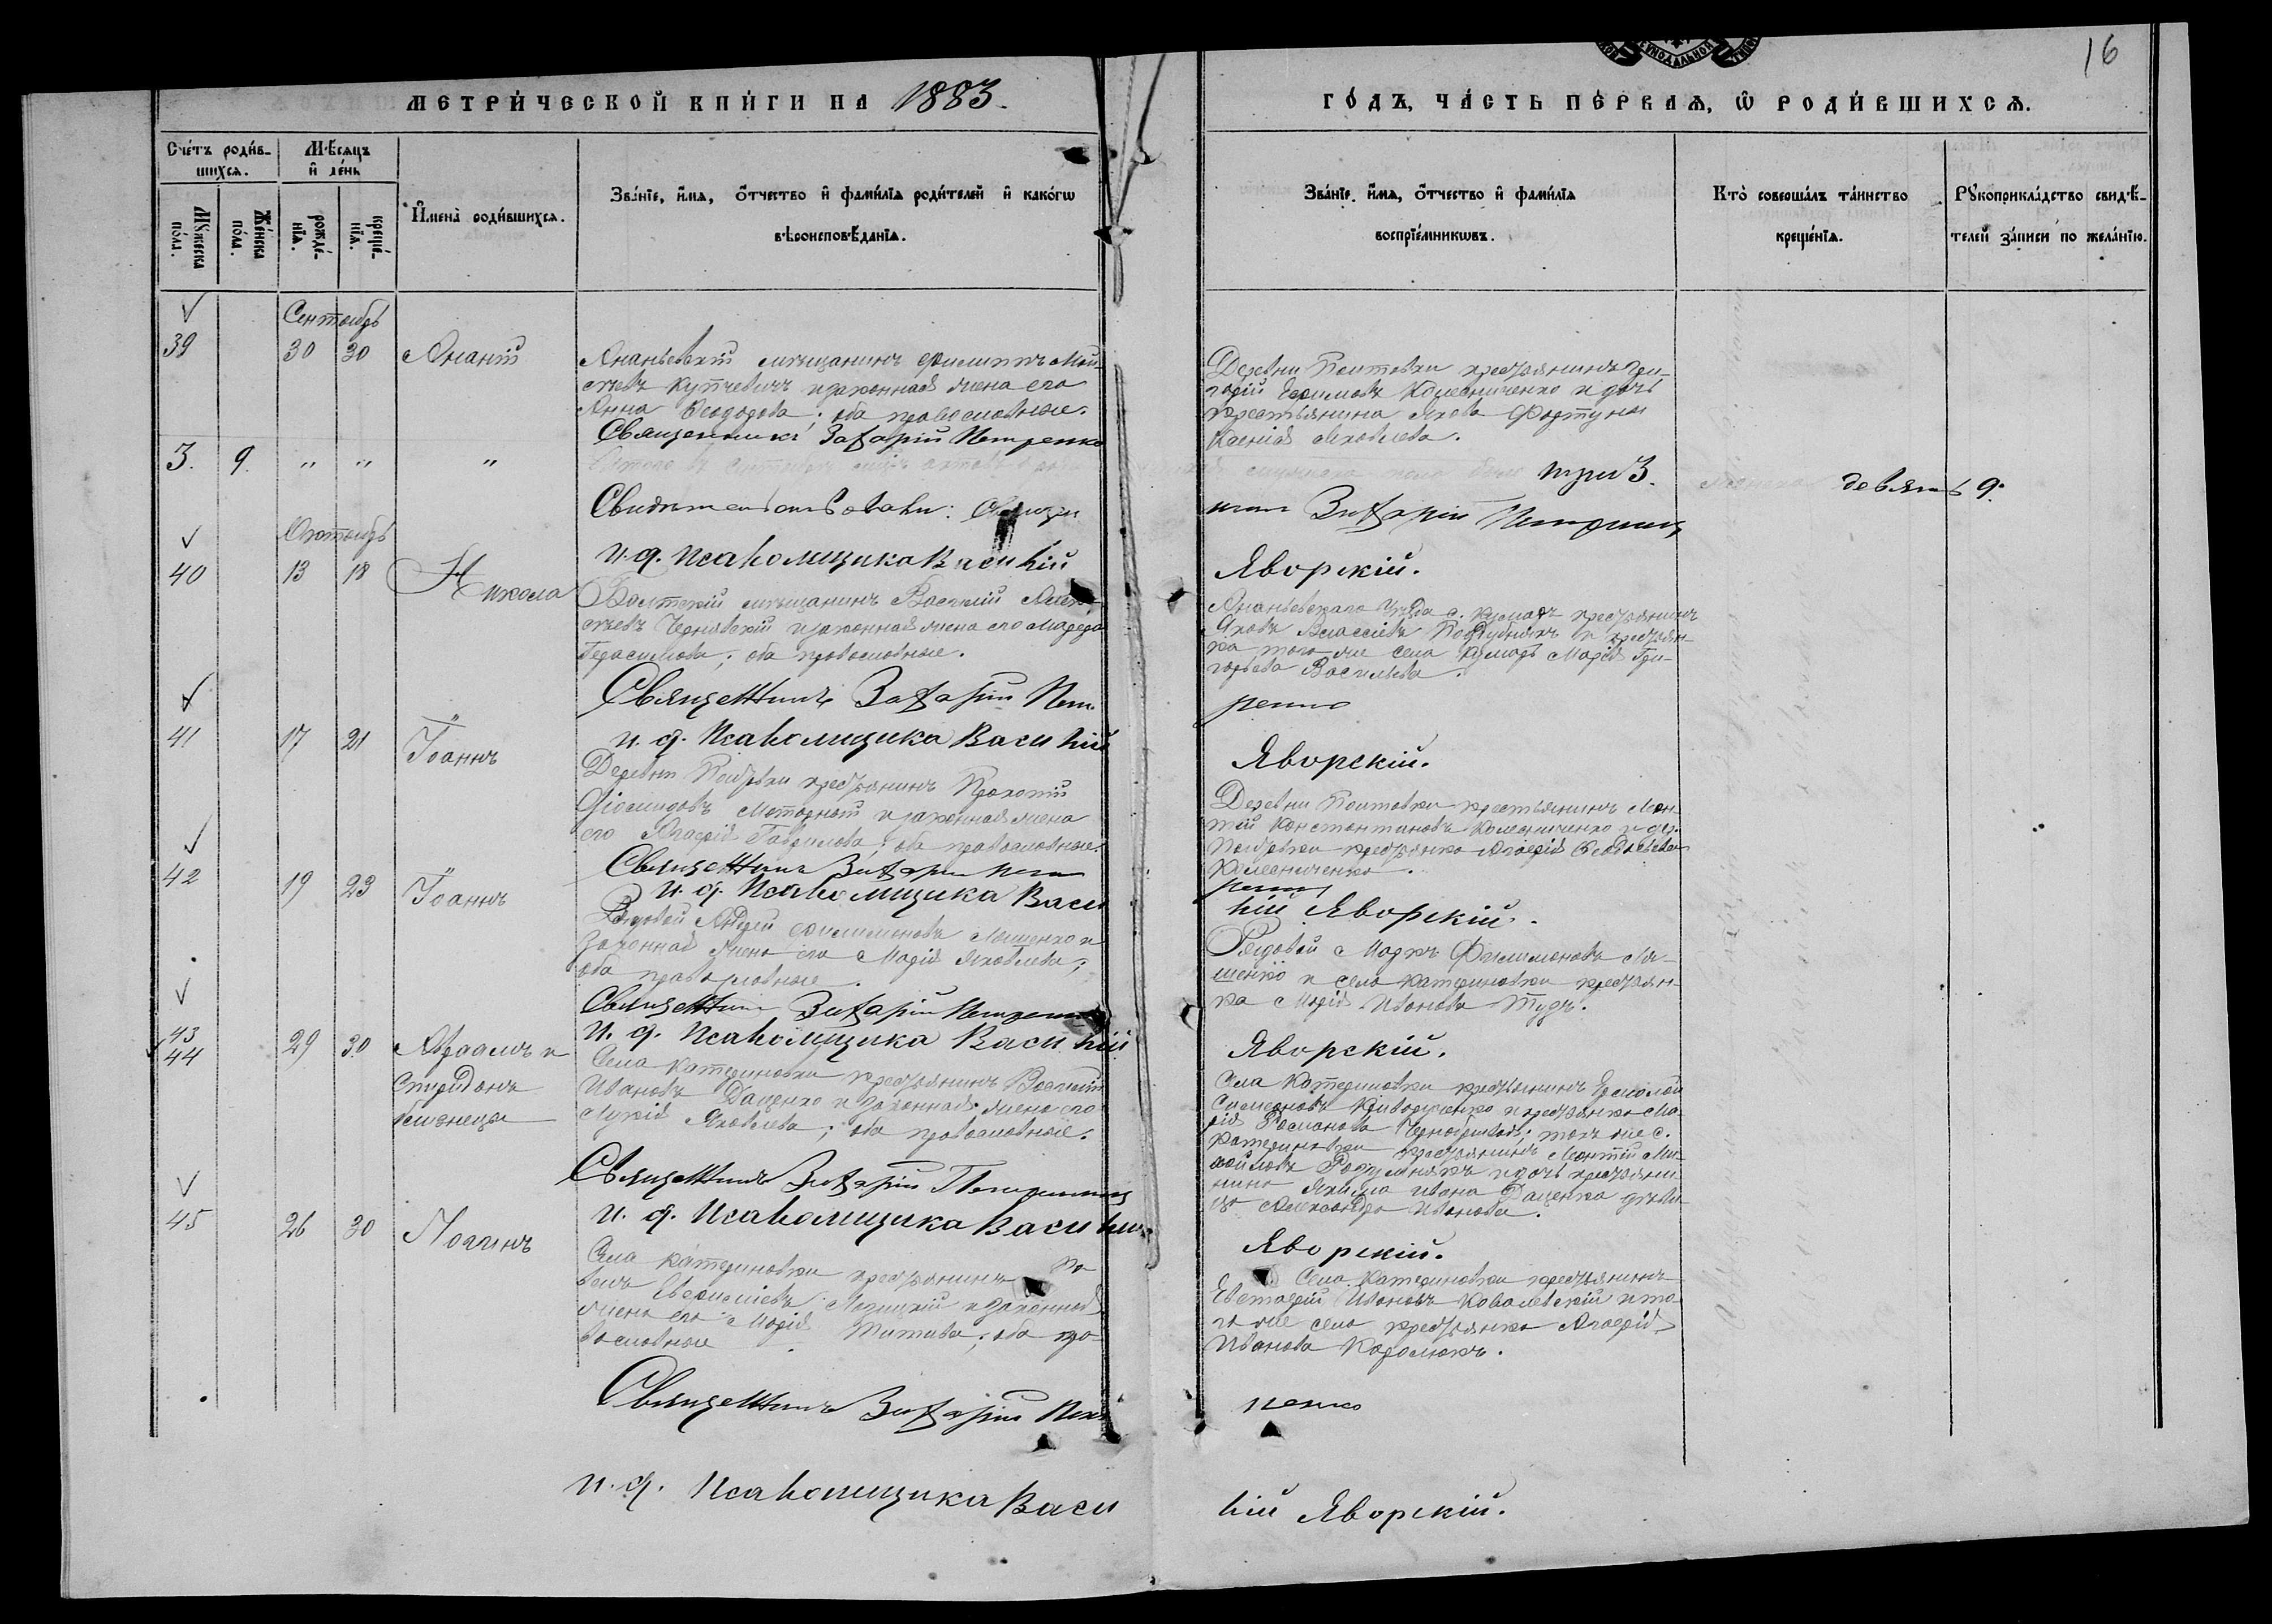 16
МЕТРИ́ЧЕСКОЙ КНИ́ГИ НА 1883.
ГО́ДЪ, ЧА́СТЬ ПЕ́РВАѦ, Ѡ РОДИ́ВШИХСѦ.
Сче́тъ роди́в-
шихсѧ.
Мꙋжеска по́ла.
Же́нска по́ла.
Мѣ́сѧцъ
и҆ де́нь
рожде́-
нїѧ.
креще́-
нїѧ.
И҆мена̀ роди́вшихсѧ.
Зва́нїе, и҆́мѧ, ѻ҆́тчество и҆ фами́лїѧ роди́телей и҆ како́гѡ
вѣроисповѣ́данїѧ.
Зва́нїе, и҆́мѧ, ѻ҆́тчество и҆ фами́лїѧ
воспрїе́мникѡвъ.
Кто̀ соверша́лъ та́инство
креще́нїѧ.
Рꙋкоприкла́дство свидѣ́-
телей за́писи по жела́нїю.
Сентябрь
39 30 30 Ананій
Ананьевскій мѣщанинъ Филиппъ Мои-
сеевъ Купчевичъ и законная жена его
Анна Ѳеодорова; оба православные.
Священникъ Захарій Петренко
Деревни Полтовки крестьянинъ Гри-
горій Колесниченко и дочь
крестьянина Якова Фортуны
Ксенія Яковлева.
3. 9. " " "
три 3. девять 9.
Свидѣтельствовали: Священ
никъ Захарій Петренко
и. д. Псаломщика Василій
Яворскій.
Октябрь
40 13 18 Никола
Балтскій мѣщанинъ Василій Алек-
сѣевъ Чернявскій и законная жена его Марѳа
Герасимова; оба православные.
Ананьевскаго Уѣзда с. крестьянинъ
Яковъ Поддубнякъ и крестьян-
ка того же села Марія Гри-
горьева Васильева.
Священникъ Захарій Пет
ренко
и. д. Псаломщика Василій
Яворскій.
41 17 21 Іоаннъ
Деревни крестьянинъ Прокопій
Діомидовъ Моторный и законная жена
его Агафія Гаврилова; оба православные.
Деревни Полтовки крестьянинъ Леон-
тій Константиновъ Колесниченко и дер.
крестьянка Агафія
Колесниченко.
Священникъ Захарій Пет
ренко
и. д. Псаломщика Васи
лій Яворскій.
42 19 23 Іоаннъ
Рядовой Андрей Филимоновъ Ляшенко и
законная жена его Марія Яковлева;
оба православные.
Рядовой Маркъ Филимоновъ Ля-
шенко и села Катериновки крестьян-
ка Марія Иванова
Священникъ Захарій Петренко
и. д. Псаломщика Василій
Яворскій.
43
44 29 30 Авраамъ и
Спиридонъ
близнецы
Села Катериновки крестьянинъ Василій
Ивановъ Даценко и законная жена его
Марія Яковлева; оба православные.
Села Катериновки крестьянинъ Ермолай
Симеоновъ и крестьянка Ма-
рія Романова; того же с.
Катериновки крестьянинъ Леонтій Ми-
хайловъ и дочь крестьяни-
на Ивана Даценка дѣви-
ца Александра Иванова.
Священникъ Захарій Петренко
и. д. Псаломщика Василій
Яворскій.
45 26 30 Логинъ
Села Катериновки крестьянинъ Па-
велъ и законная
жена его Марія Титова; оба пра-
вославные.
Села Катериновки крестьянинъ
Евстафій Ивановъ Ковалевскій и то-
го же села крестьянка Агафія
Иванова
Священникъ Захарій Пет
ренко
и. д. Псаломщика Васи
лій Яворскій.